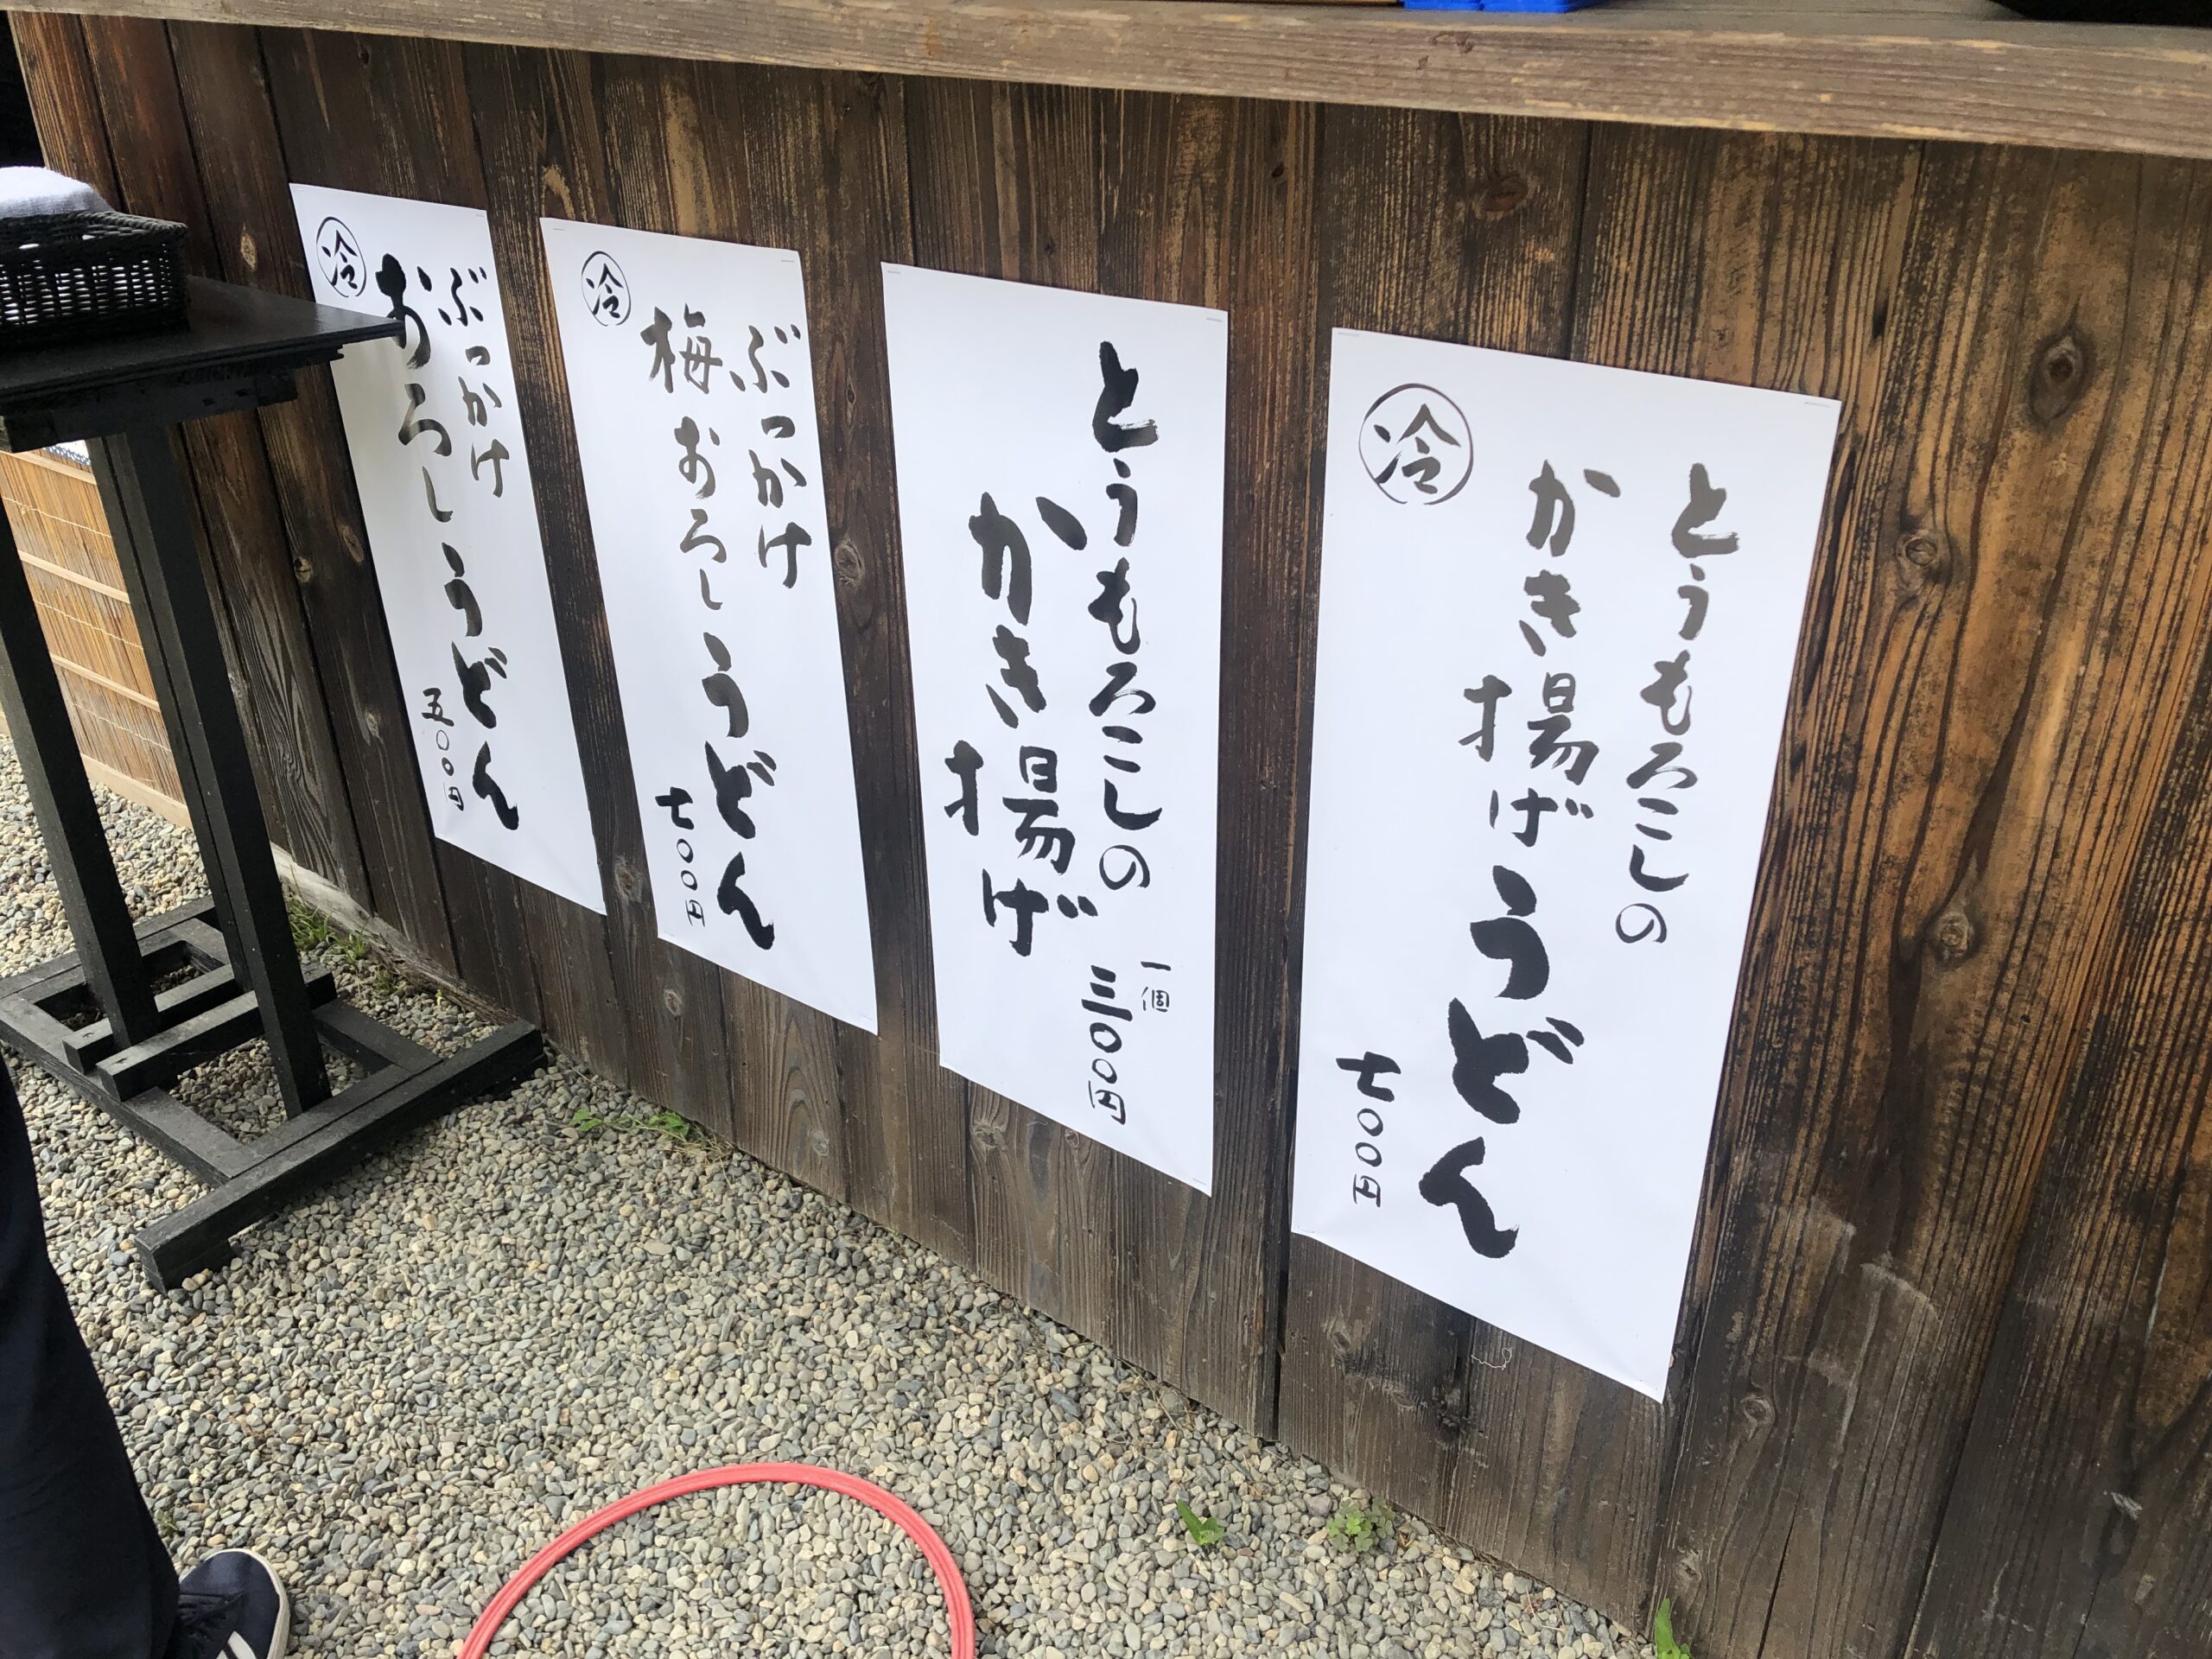 とうもろこしの
かき揚げうどん
冷
七〇〇円
とうもろこしの
かき揚げ
一個
三〇〇円
ぶっかけ
梅おろしうどん
冷
七〇〇円
ぶっかけ
おろしうどん
冷
五〇〇円